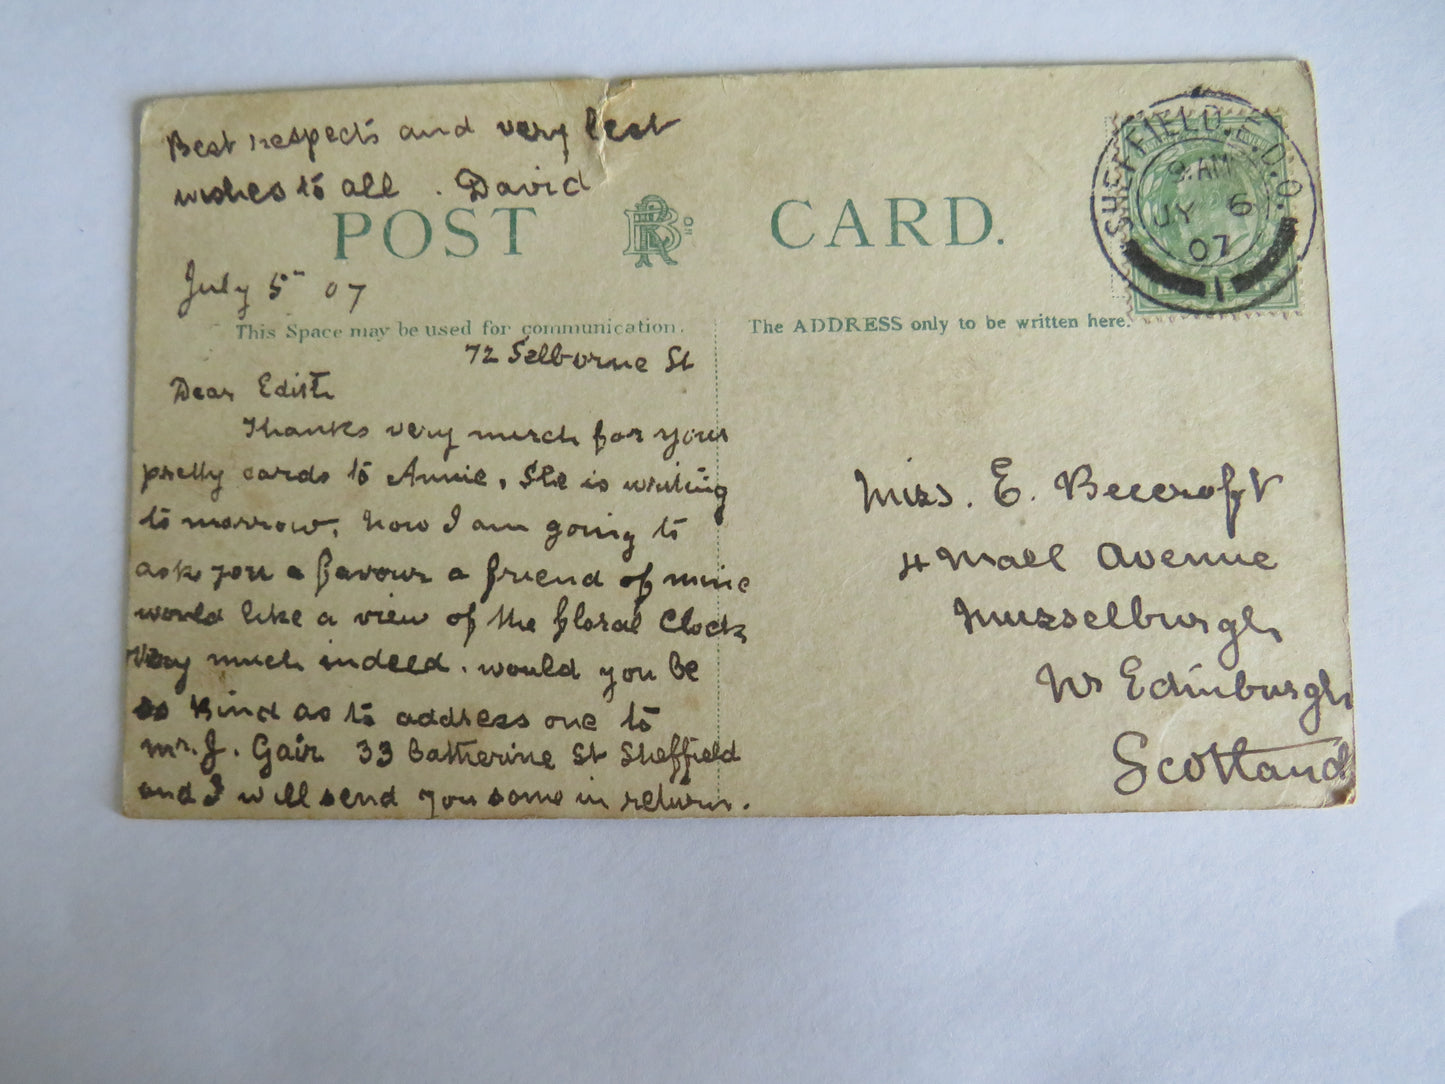 Best respects and very best
wishes to all . David
POST CARD.
July 5th 07
This Space may be used for communication.
The ADDRESS only to be written here.
72 Selborne St
Dear Edith
Thanks very much for your
pretty cards to Annie, She is writing
to morrow, now I am going to
ask you a favour a friend of mine
would like a view of the floral Clock
very much indeed. would you be
so kind as to address one to
mr. J. Gair 33 Catherine St Sheffield
and I will send you some in return.
Miss. E. Beecroft
4 Mall Avenue
Musselburgh
Nr Edinburgh
Scotland
SHEFFIELD
9. AM
JY 6
07
1